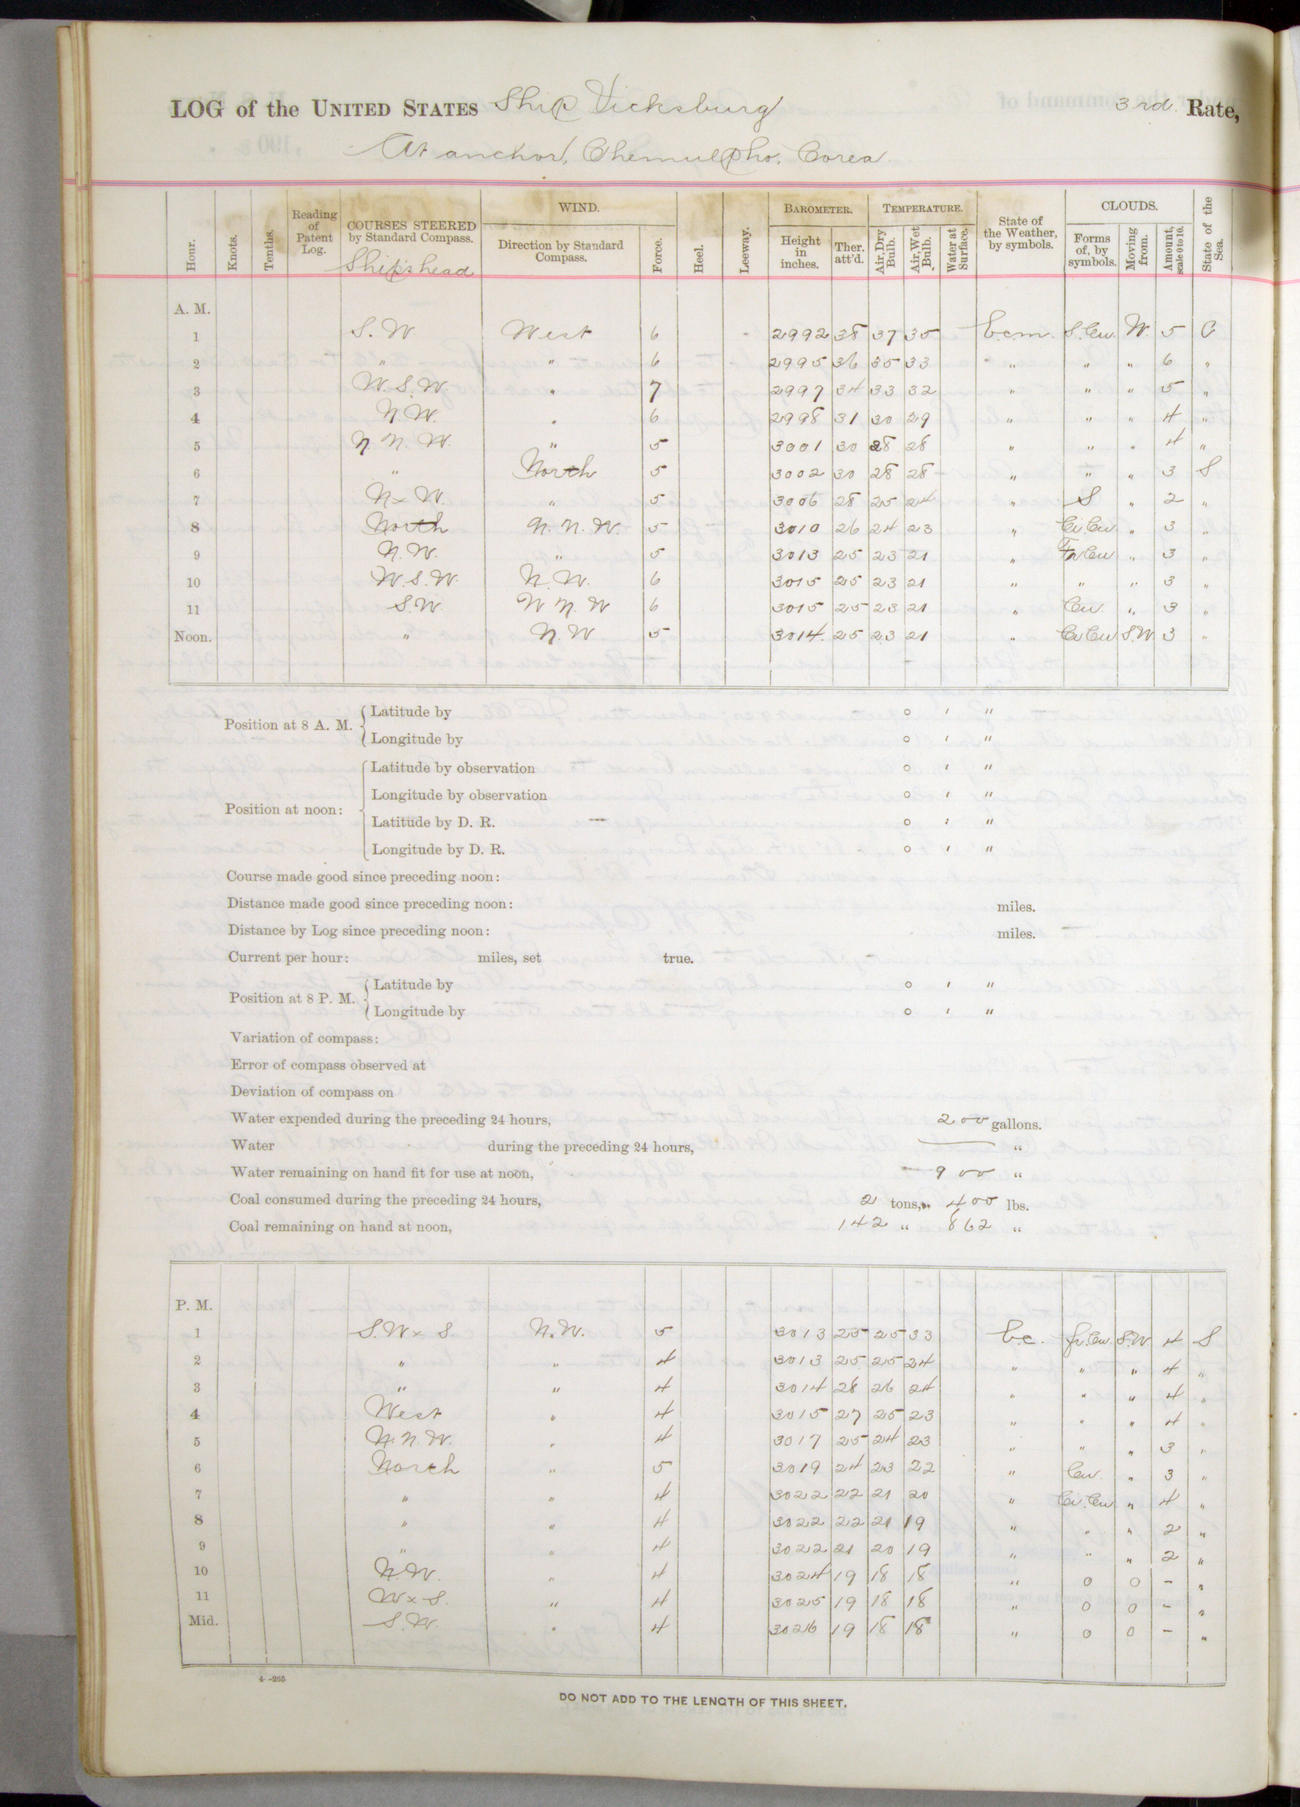 LOG of the UNITED STATES Ship Vicksburg 3rd. Rate,
At anchor, Chemulpho, Corea
Hour. Knots. Tenths. Reading of Patent Log. COURSES STEERED by Standard Compass. Ship's head WIND. Direction by Standard Compass. Force. Heel. Leeway. BAROMETER. Height in inches. Ther. att'd. TEMPERATURE. Air, Dry Bulb. Air, Wet Bulb. Water at Surface. State of the Weather, by symbols. CLOUDS. Forms of, by symbols. Moving from. Amount, scale 0 to 10. State of the Sea.
A. M.
1 S.W West 6 2992 38 37 35 b.c.m. S.Cu. W. 5 C
2 " " 6 2995 36 35 33 " " " 6 "
3 W.S.W. " 7 2997 34 33 32 " " " 5 "
4 N.W. " 6 2998 31 30 29 " " " 4 "
5 N N. W. " 5 3001 30 28 28 " " " 4 "
6 " North 5 3002 30 28 28 " " " 3 S
7 N x W. " 5 3006 28 25 24 " S " 2 "
8 North N. N. W. 5 3010 26 24 23 " Ci.Cu. " 3 "
9 N.W. " 5 3013 25 23 21 " Fr.Cu " 3 "
10 W.S.W. N.W. 6 3015 25 23 21 " " " 3 "
11 S.W. W N. W 6 3015 25 23 21 " Cu. " 3 "
Noon. " N.W 5 3014. 25 23 21 " Ci.Cu S.W. 3 "
Position at 8 A. M. Latitude by ° ' "
Longitude by ° ' "
Position at noon: Latitude by observation ° ' "
Longitude by observation ° ' "
Latitude by D. R. ° ' "
Longitude by D. R. ° ' "
Course made good since preceding noon:
Distance made good since preceding noon: miles.
Distance by Log since preceding noon: miles.
Current per hour: miles, set true.
Position at 8 P. M. Latitude by ° ' "
Longitude by ° ' "
Variation of compass:
Error of compass observed at
Deviation of compass on
Water expended during the preceding 24 hours, 200 gallons.
Water during the preceding 24 hours, "
Water remaining on hand fit for use at noon, 900 "
Coal consumed during the preceding 24 hours, 2 tons, 400 lbs.
Coal remaining on hand at noon, 142 " 862 "
P. M.
1 S.W x S. N.W. 5 3013 25 25 33 b.c. Fr.Cu. S.W. 4 S
2 " " 4 3013 25 25 24 " " " 4 "
3 " " 4 3014 28 26 24 " " " 4 "
4 West " 4 3015 27 25 23 " " " 4 "
5 N.N.W. " 4 3017 25 24 23 " " " 3 "
6 North " 5 3019 24 23 22 " Cu. " 3 "
7 " " 4 3022 22 21 20 " Ci.Cu " 4 "
8 " " 4 3022 22 21 19 " " " 2 "
9 " " 4 3022 21 20 19 " " " 2 "
10 N.W. 4 3024 19 18 18 " 0 0 - "
11 W x S. " 4 3025 19 18 18 " 0 0 - "
Mid. S.W. " 4 3026 19 18 18 " 0 0 - "
4-265
DO NOT ADD TO THE LENGTH OF THIS SHEET.